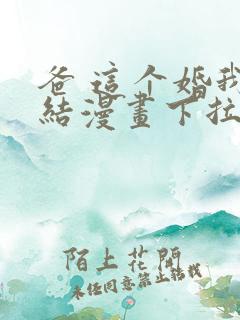 爸 這个婚我
結漫畫下拉
陌上花開
未經同意禁止轉載